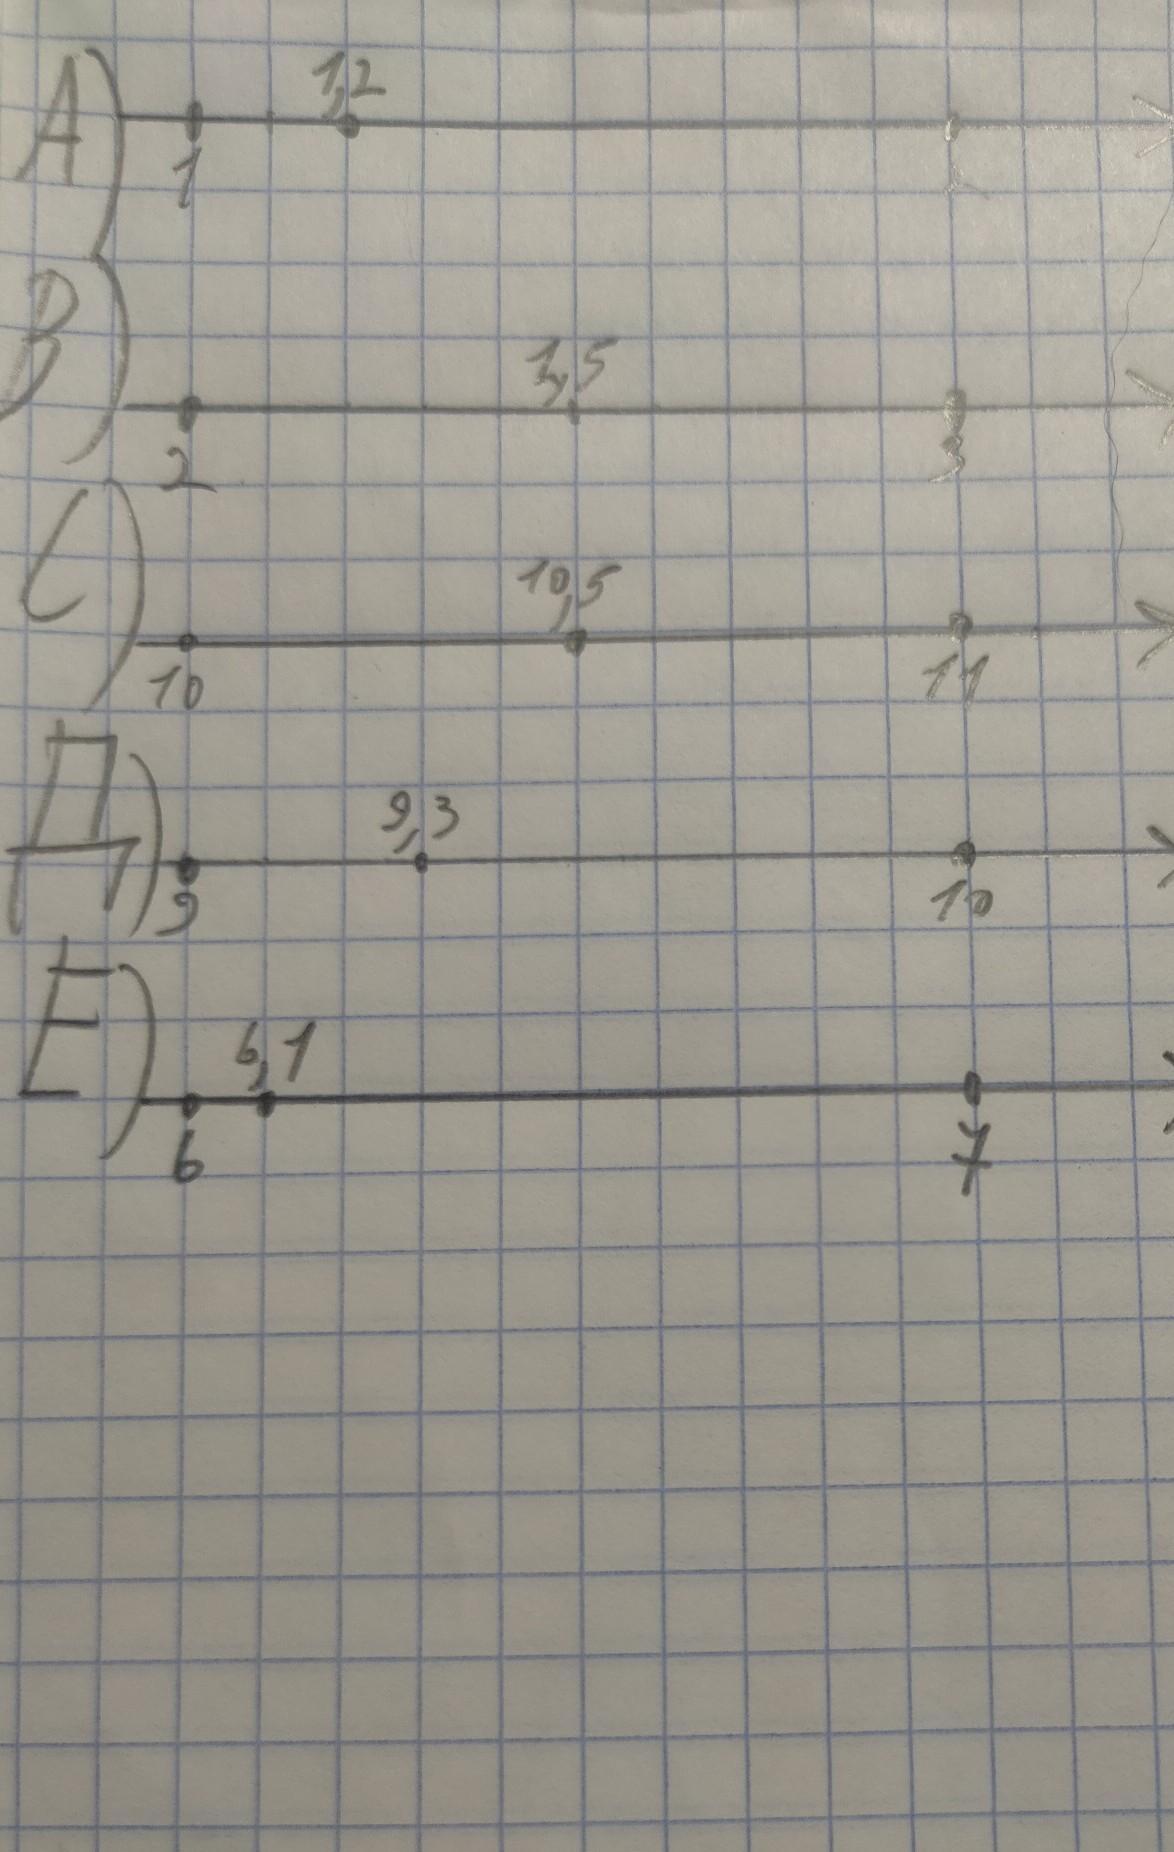 А)
1,2
1
В)
2
3
С)
10,5
10 11
Д)
9,3
9 10
Е)
6,1
6 7